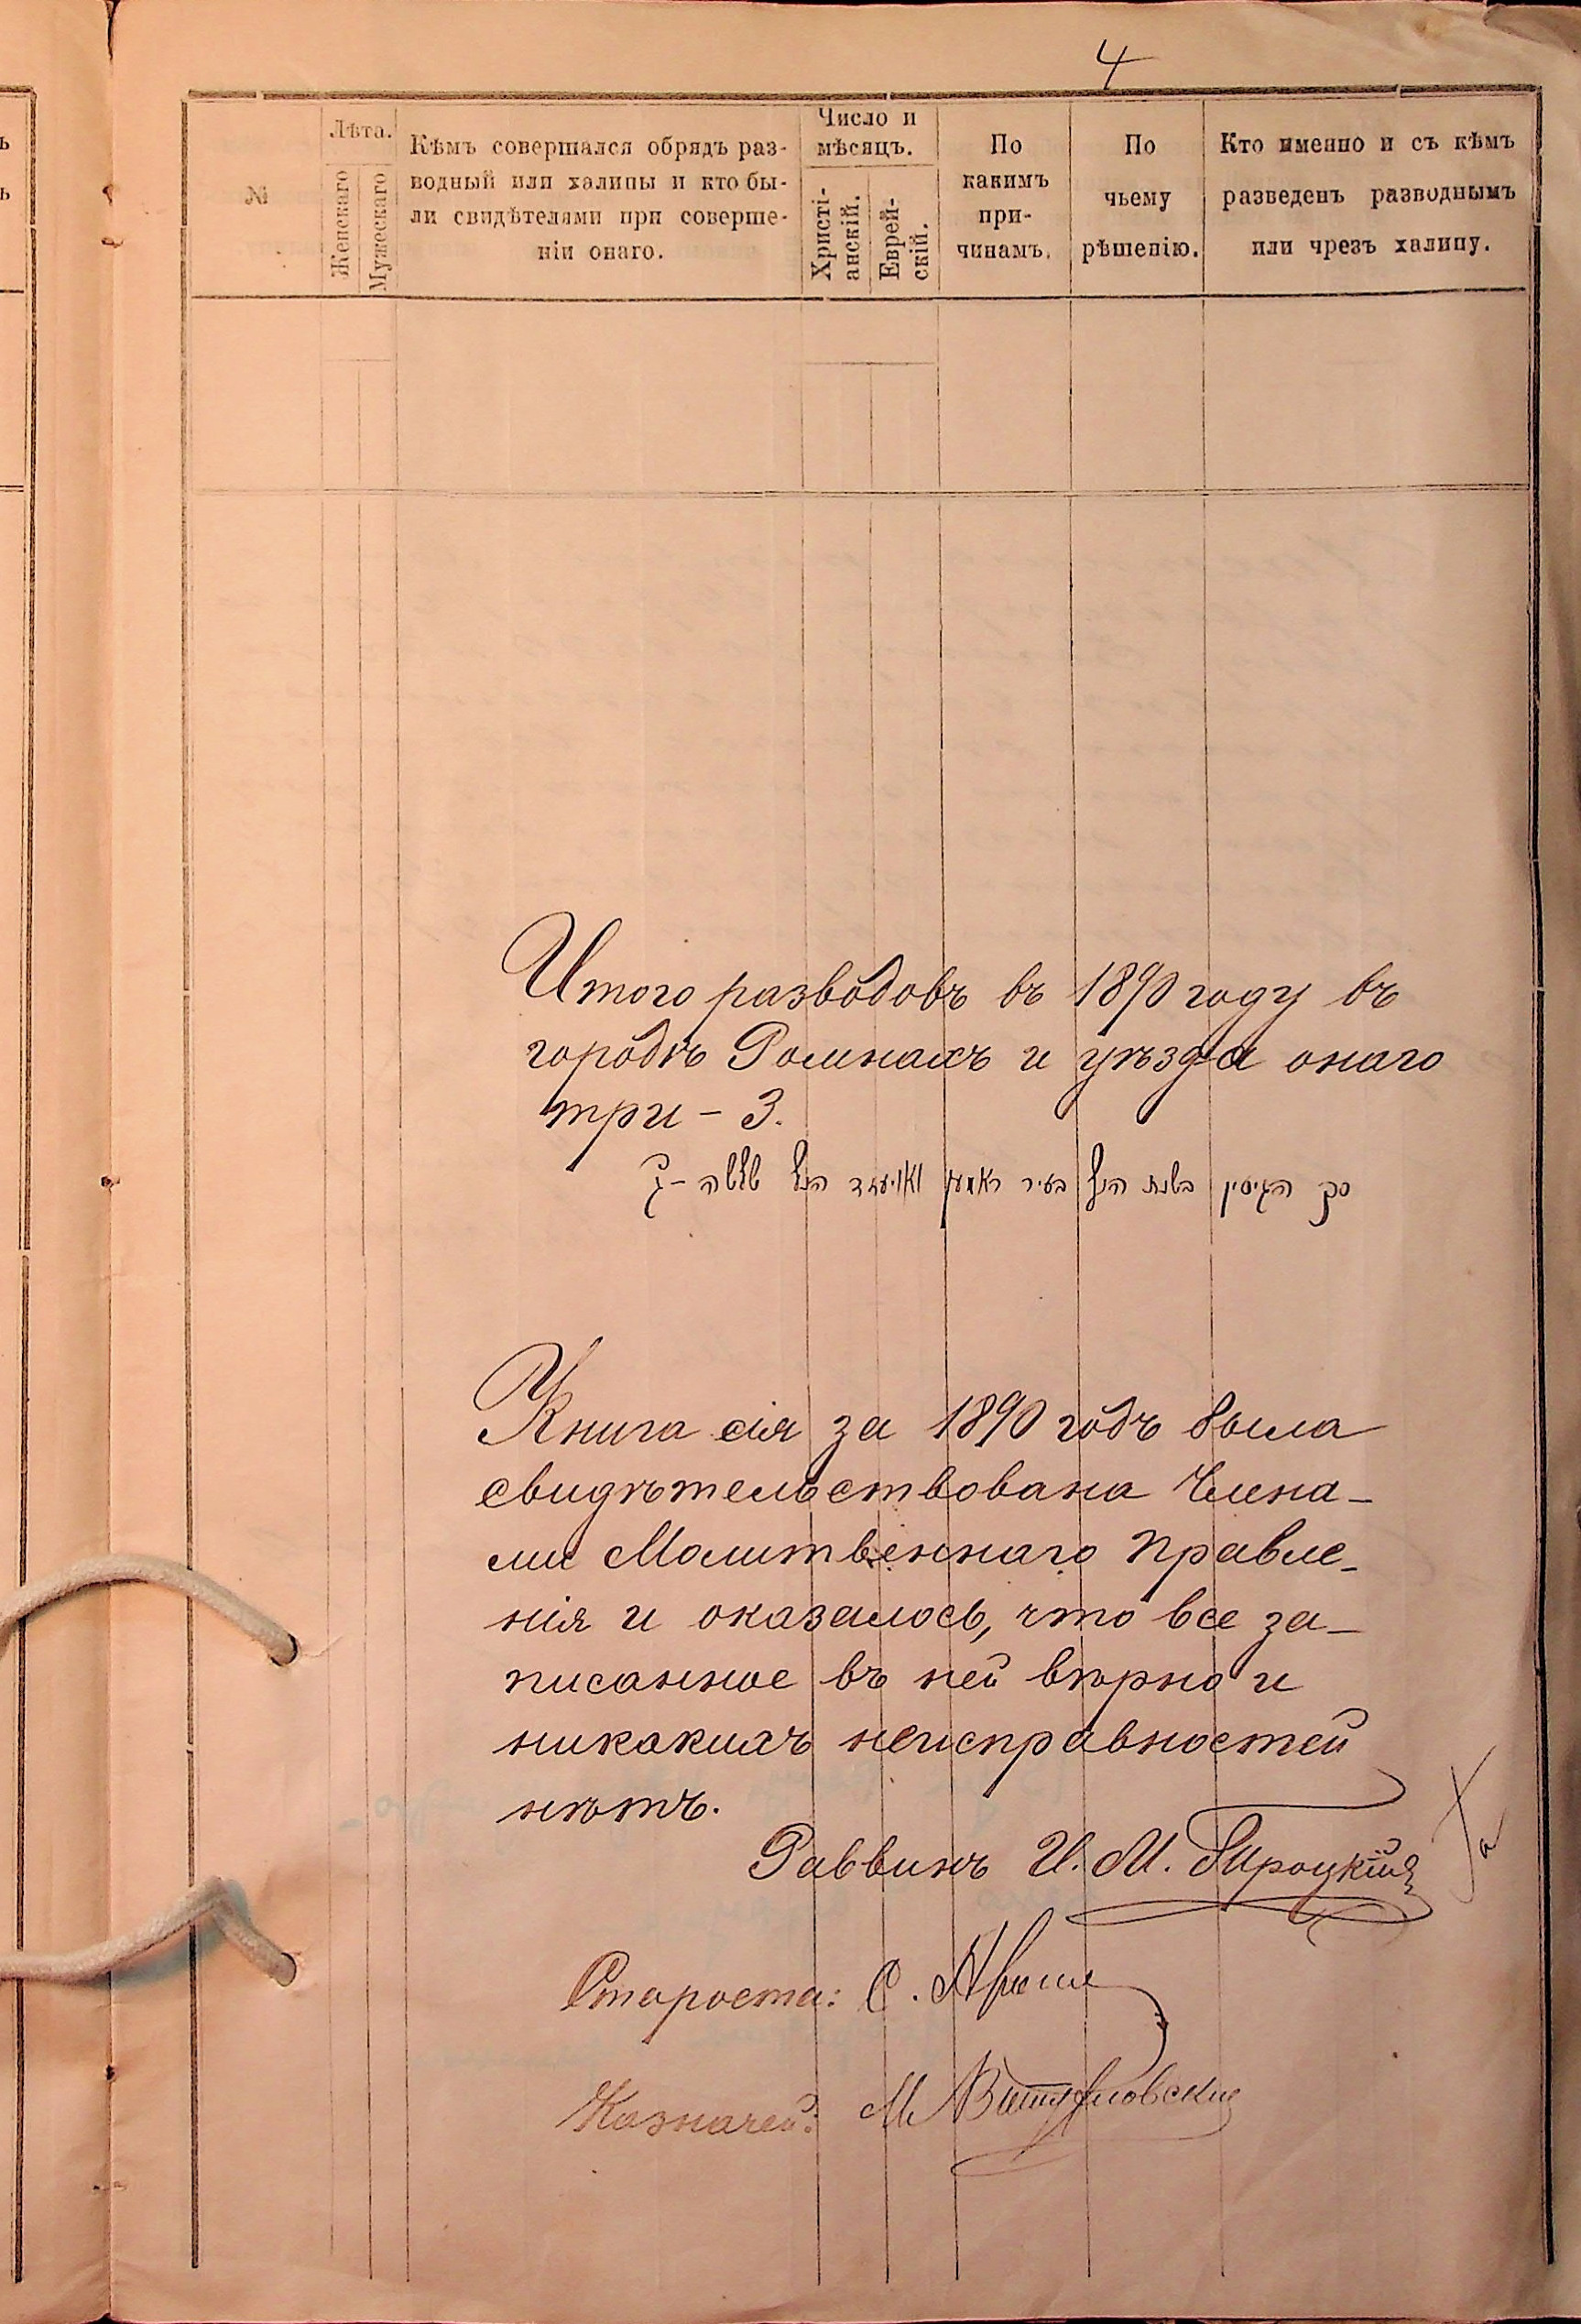 4
№
Лѣта.
Женскаго
Мужескаго
Кѣмъ совершался обрядъ раз-
водный или халицы и кто бы-
ли свидѣтелями при соверше-
ніи онаго.
Число и
мѣсяцъ.
Христі-
анскій.
Еврей-
скій.
По
какимъ
при-
чинамъ.
По
чьему
рѣшенію.
Кто именно и съ кѣмъ
разведенъ разводнымъ
или чрезъ халицу.
Итого разводовъ въ 1890 году въ
городѣ Ромнахъ и уѣзда онаго
три – 3.
סך הגיטין בשנת הנ״ל בעיר ראמען הנ״ל שלשה – ג׳
Книга сія за 1890 годъ была
свидѣтельствована Члена-
ми Молитвеннаго Правле-
нія и оказалось, что все за-
писанное въ ней вѣрно и
никакихъ неисправностей
нѣтъ.
Раввинъ И. М.
Староста: С.
Казначей: М